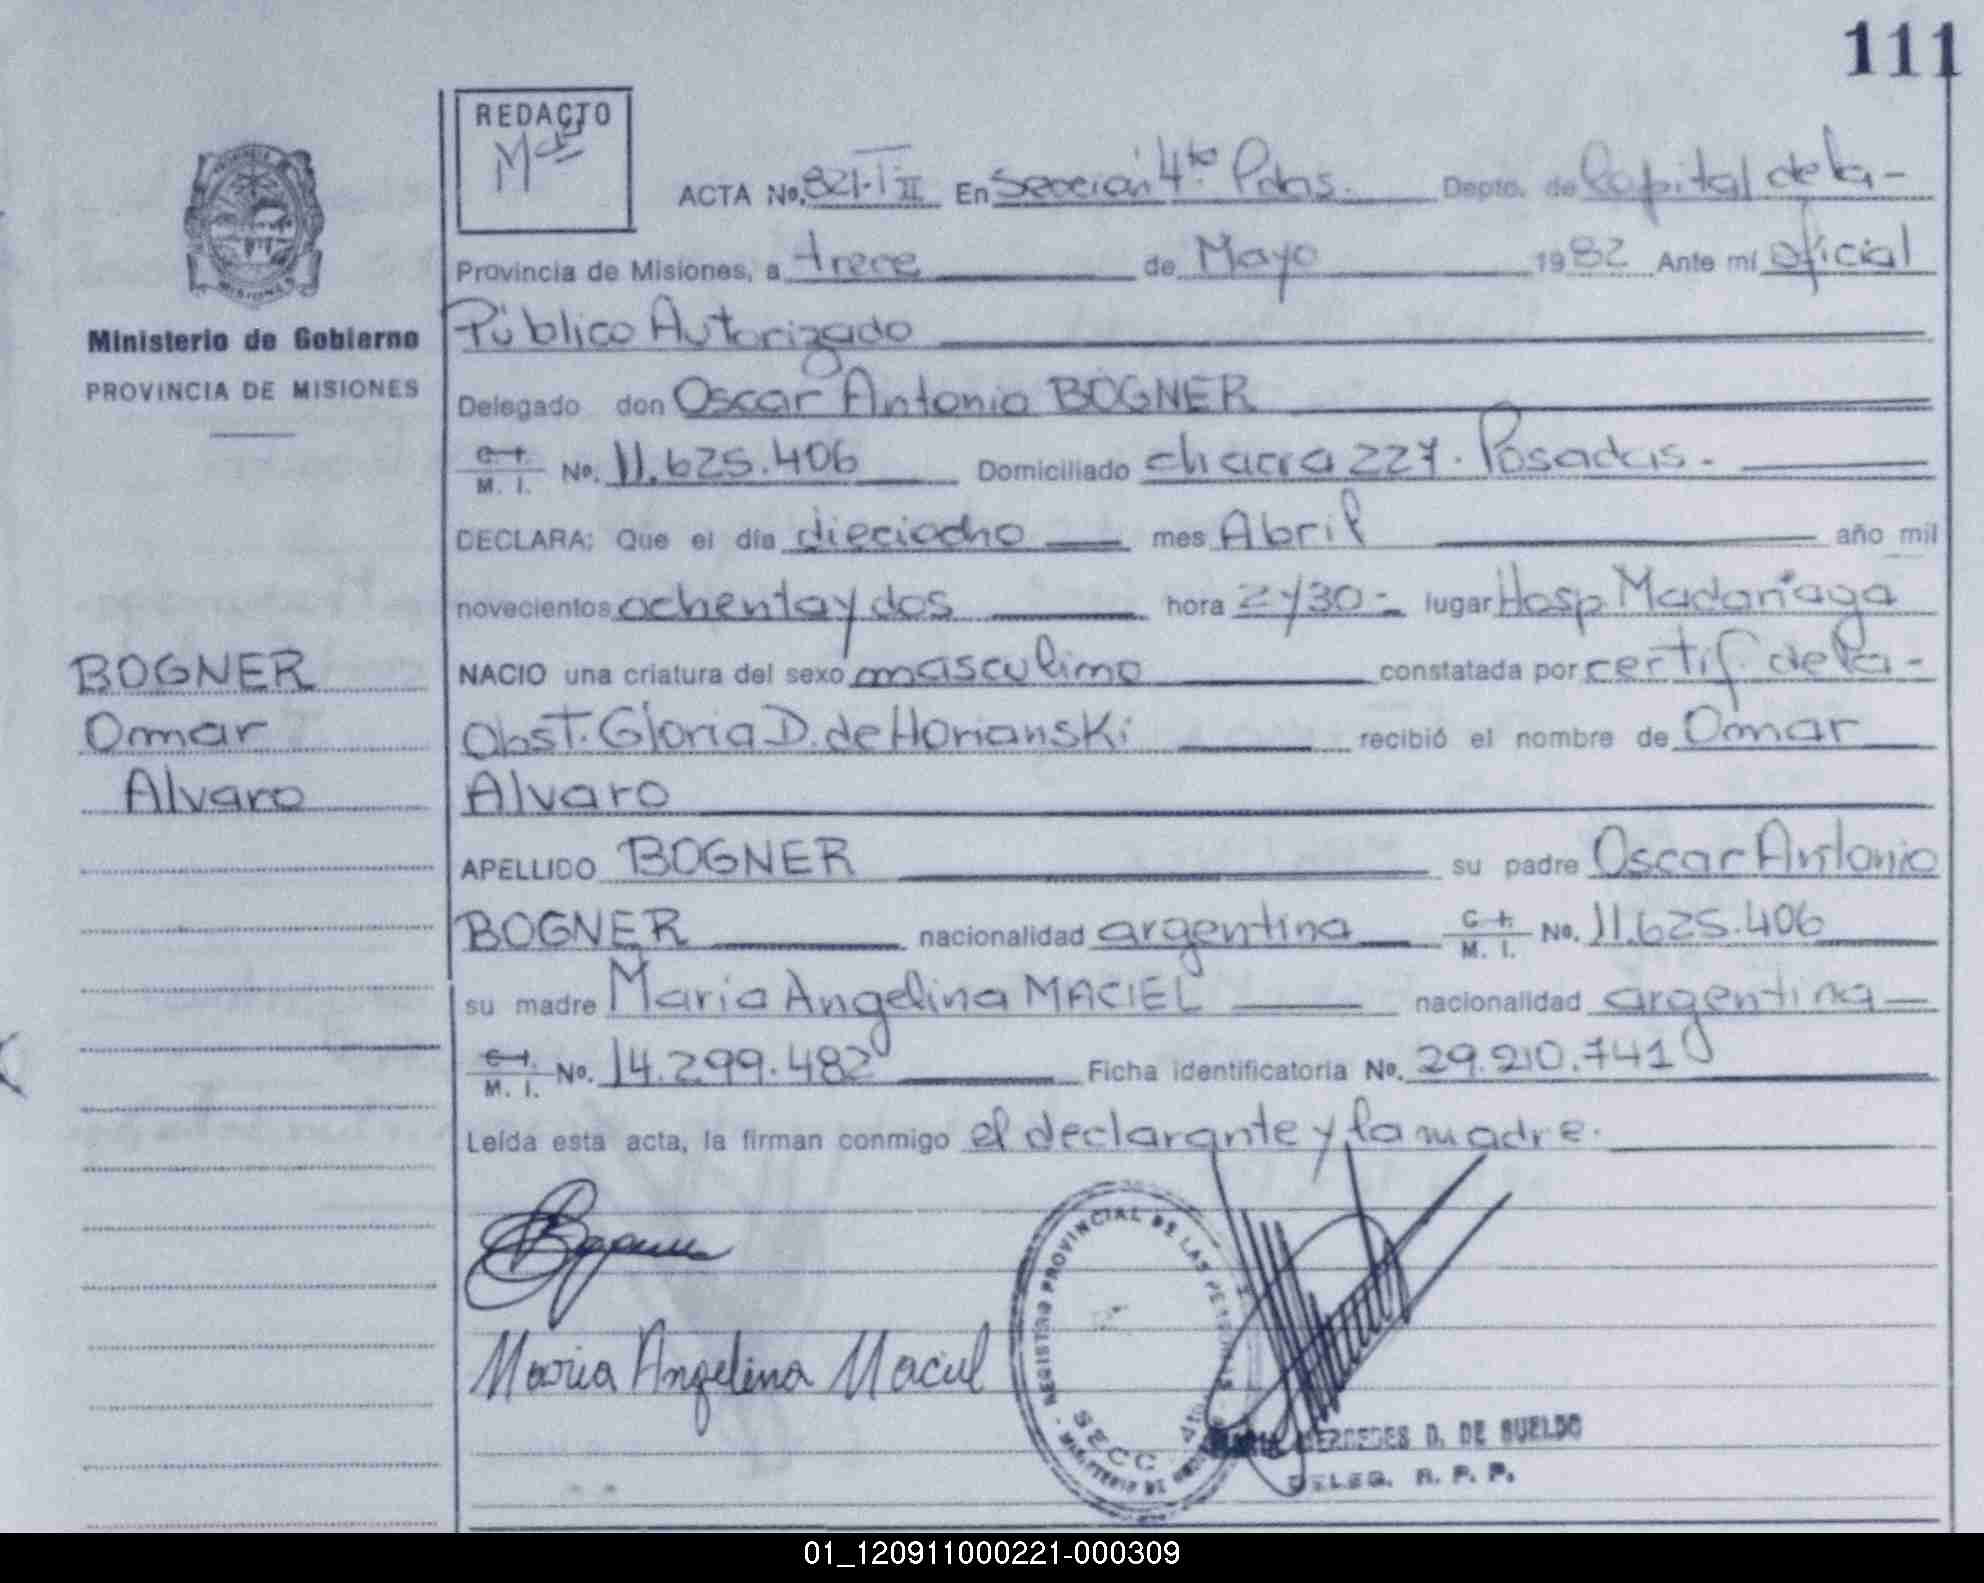 111
REDACTO
ACTA No. 821-T II En Sección 4ta Pdas. Depto. de Capital de la-
Provincia de Misiones, a trece de Mayo 1982 Ante mí oficial
Ministerio de Gobierno
PROVINCIA DE MISIONES
Público Autorizado
Delegado don Oscar Antonio BOGNER
C. I. M. I. No. 11.625.406 Domiciliado chacra 227. Posadas.-
DECLARA: Que el día dieciocho mes Abril año mil
novecientos ochenta y dos hora 2 y 30- lugar Hosp Madariaga
BOGNER
Omar
Alvaro
NACIO una criatura del sexo masculino constatada por certif. de la-
Obst. Gloria D. de Horianski recibió el nombre de Omar
Alvaro
APELLIDO BOGNER su padre Oscar Antonio
BOGNER nacionalidad argentina C. I. M. I. No. 11.625.406
su madre Maria Angelina MACIEL nacionalidad argentina
C. I. M. I. No. 14.299.482 Ficha identificatoria No. 29.210.741
Leída esta acta, la firman conmigo el declarante y la madre.
Maria Angelina Maciel
REGISTRO PROVINCIAL DE LAS PERSONAS
SECC. 4ta
MERCEDES D. DE SUELDO
DELEG. R. P. P.
01_120911000221-000309